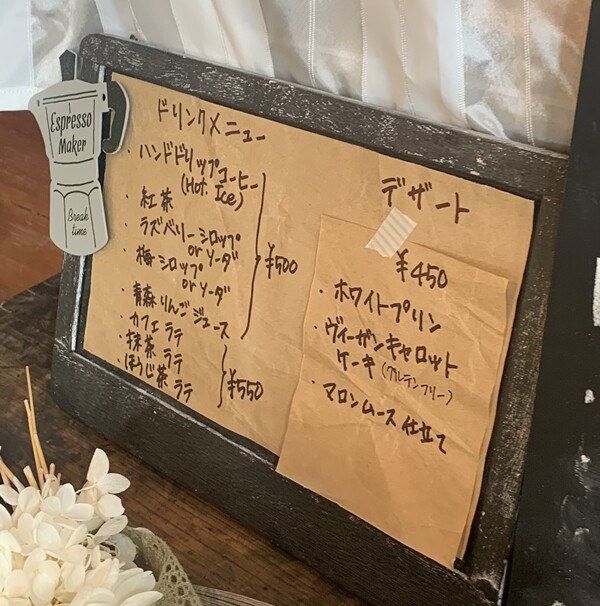 Espresso
Maker
Break
time
ドリンクメニュー
・ハンドドリップコーヒー
(Hot. Ice)
・紅茶
・ラズベリーシロップ
or ソーダ
・梅シロップ
or ソーダ
・青森りんごジュース
¥500
・カフェラテ
・抹茶ラテ
・ほうじ茶ラテ
¥550
デザート
¥450
・ホワイトプリン
・ヴィーガンキャロット
ケーキ(グルテンフリー)
・マロンムース仕立て